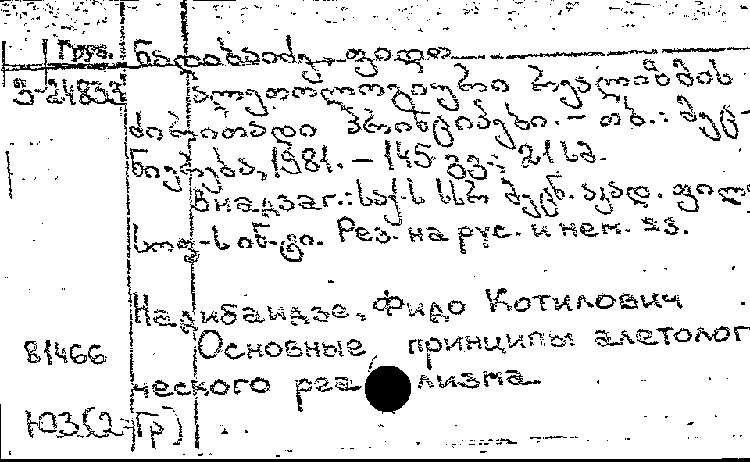 Груз. ნადიბაიძე, ფიდო
5-24833 ალეთოლოგიური რეალიზმის
ძირითადი პრინციპები. – თბ.: მეც-
ნიერება, 1981. – 145 გვ.; 21 სმ.
В надзаг.: საქ.ს სსრ მეცნ. აკად. ფილო
სოფ-ს ინ-ტი. Рез. на рус. и нем. яз.
Надибаидзе, Фидо Котилович
81466 Основные принципы алетолог
ческого реализма.
Ю3(2=Гр)